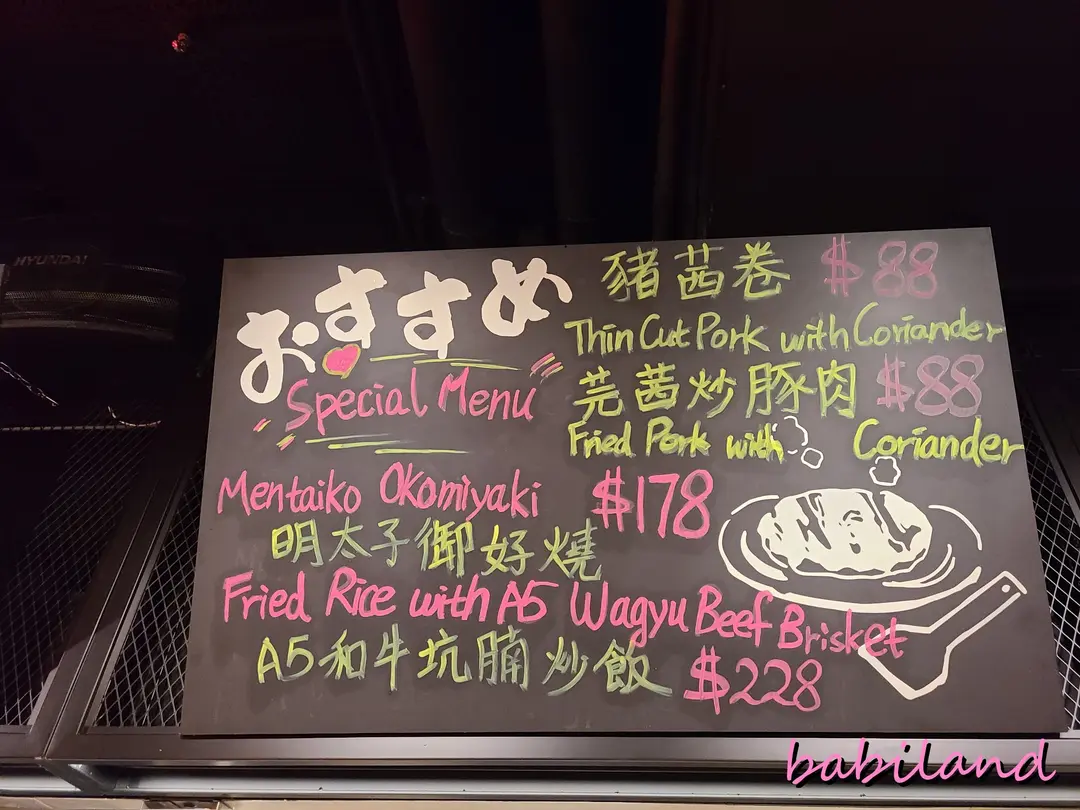 HYUNDAI
おすすめ
Special Menu
豬茜卷 $88
Thin Cut Pork with Coriander
芫茜炒豚肉 $88
Fried Pork with Coriander
Mentaiko Okomiyaki $178
明太子御好燒
Fried Rice with A5 Wagyu Beef Brisket
A5和牛坑腩炒飯 $228
babiland